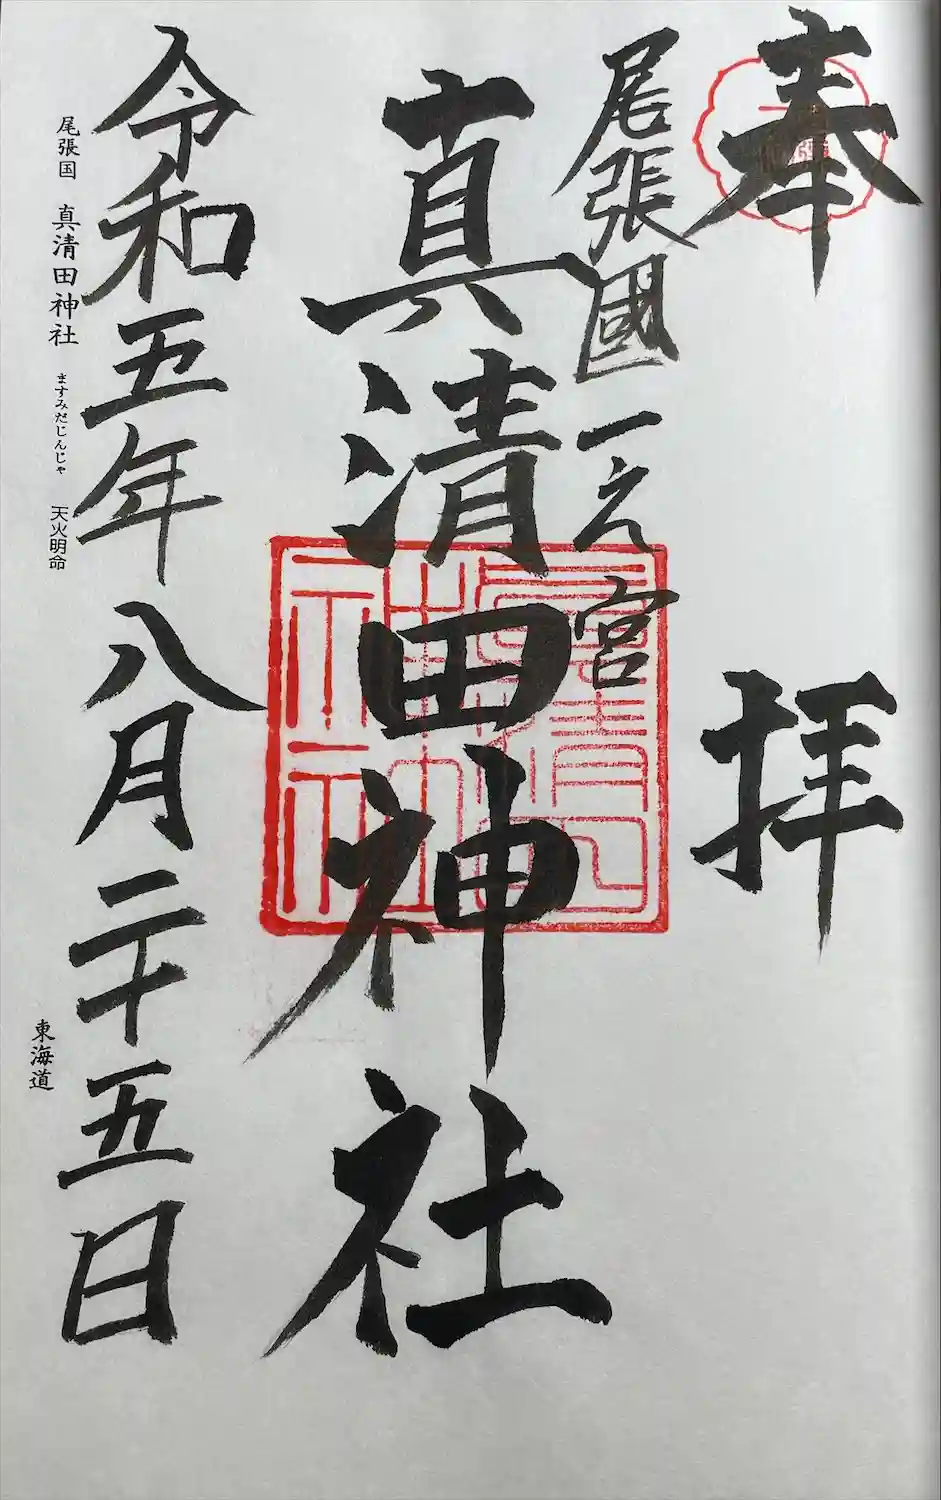 奉拝
尾張國一之宮
真清田神社
令和五年八月二十五日
尾張国 真清田神社 ますみだじんじゃ 天火明命
東海道
真清田神社